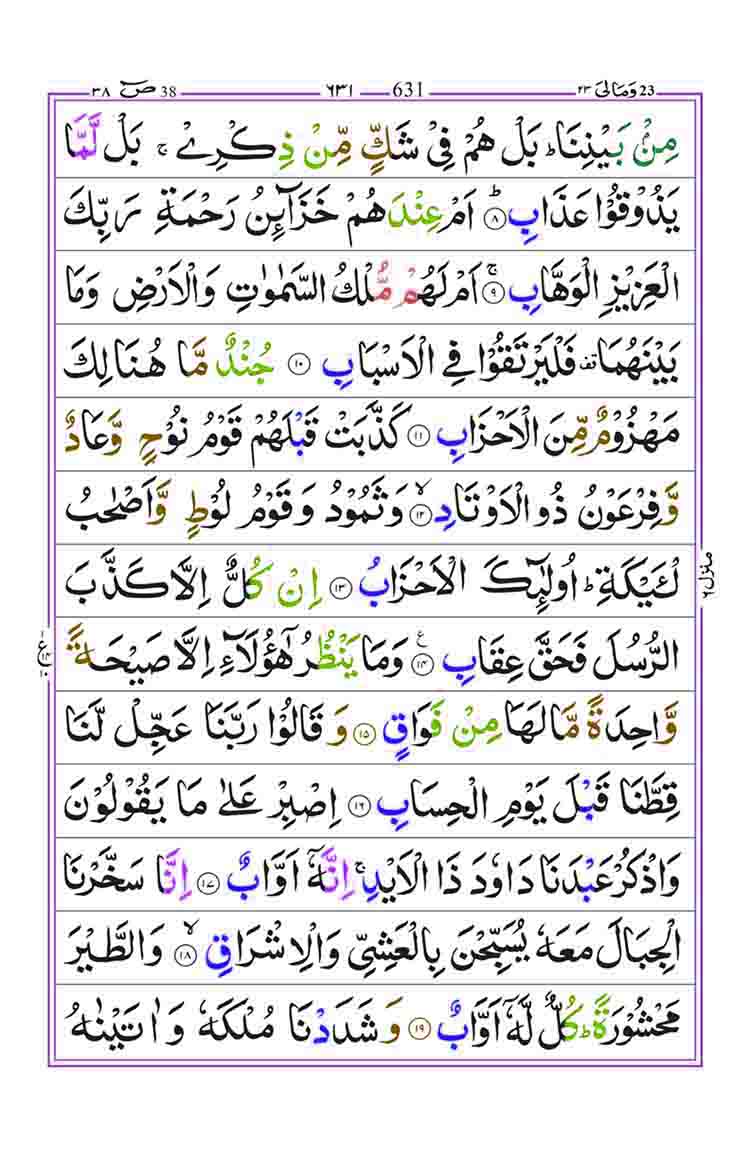 ٣٨ صٓ 38 ٦٣١ 631 ٢٣ وَمَالِیَ 23
مِنْۢ بَیْنِنَا ؕ بَلْ هُمْ فِیْ شَكٍّ مِّنْ ذِكْرِیْ ۚ بَلْ لَّمَّا
یَذُوْقُوْا عَذَابِ ﴿۸﴾ؕ اَمْ عِنْدَهُمْ خَزَآئِنُ رَحْمَةِ رَبِّكَ
الْعَزِیْزِ الْوَهَّابِ ﴿۹﴾ۚ اَمْ لَهُمْ مُّلْكُ السَّمٰوٰتِ وَالْاَرْضِ وَمَا
بَیْنَهُمَا ۫ فَلْیَرْتَقُوْا فِی الْاَسْبَابِ ﴿۱۰﴾ جُنْدٌ مَّا هُنَالِكَ
مَهْزُوْمٌ مِّنَ الْاَحْزَابِ ﴿۱۱﴾ كَذَّبَتْ قَبْلَهُمْ قَوْمُ نُوْحٍ وَّعَادٌ
وَّفِرْعَوْنُ ذُو الْاَوْتَادِ ﴿۱۲﴾ۙ وَثَمُوْدُ وَقَوْمُ لُوْطٍ وَّاَصْحٰبُ
لْـَٔیْكَةِ ؕ اُولٰٓئِكَ الْاَحْزَابُ ﴿۱۳﴾ اِنْ كُلٌّ اِلَّا كَذَّبَ
الرُّسُلَ فَحَقَّ عِقَابِ ﴿۱۴﴾ ع وَمَا یَنْظُرُ هٰۤؤُلَآءِ اِلَّا صَیْحَةً
وَّاحِدَةً مَّا لَهَا مِنْ فَوَاقٍ ﴿۱۵﴾ وَقَالُوْا رَبَّنَا عَجِّلْ لَّنَا
قِطَّنَا قَبْلَ یَوْمِ الْحِسَابِ ﴿۱۶﴾ اِصْبِرْ عَلٰی مَا یَقُوْلُوْنَ
وَاذْكُرْ عَبْدَنَا دَاوٗدَ ذَا الْاَیْدِ ۚ اِنَّهٗۤ اَوَّابٌ ﴿۱۷﴾ اِنَّا سَخَّرْنَا
الْجِبَالَ مَعَهٗ یُسَبِّحْنَ بِالْعَشِیِّ وَالْاِشْرَاقِ ﴿۱۸﴾ۙ وَالطَّیْرَ
مَحْشُوْرَةً ؕ كُلٌّ لَّهٗۤ اَوَّابٌ ﴿۱۹﴾ وَشَدَدْنَا مُلْكَهٗ وَاٰتَیْنٰهُ
منزل ٦
ع